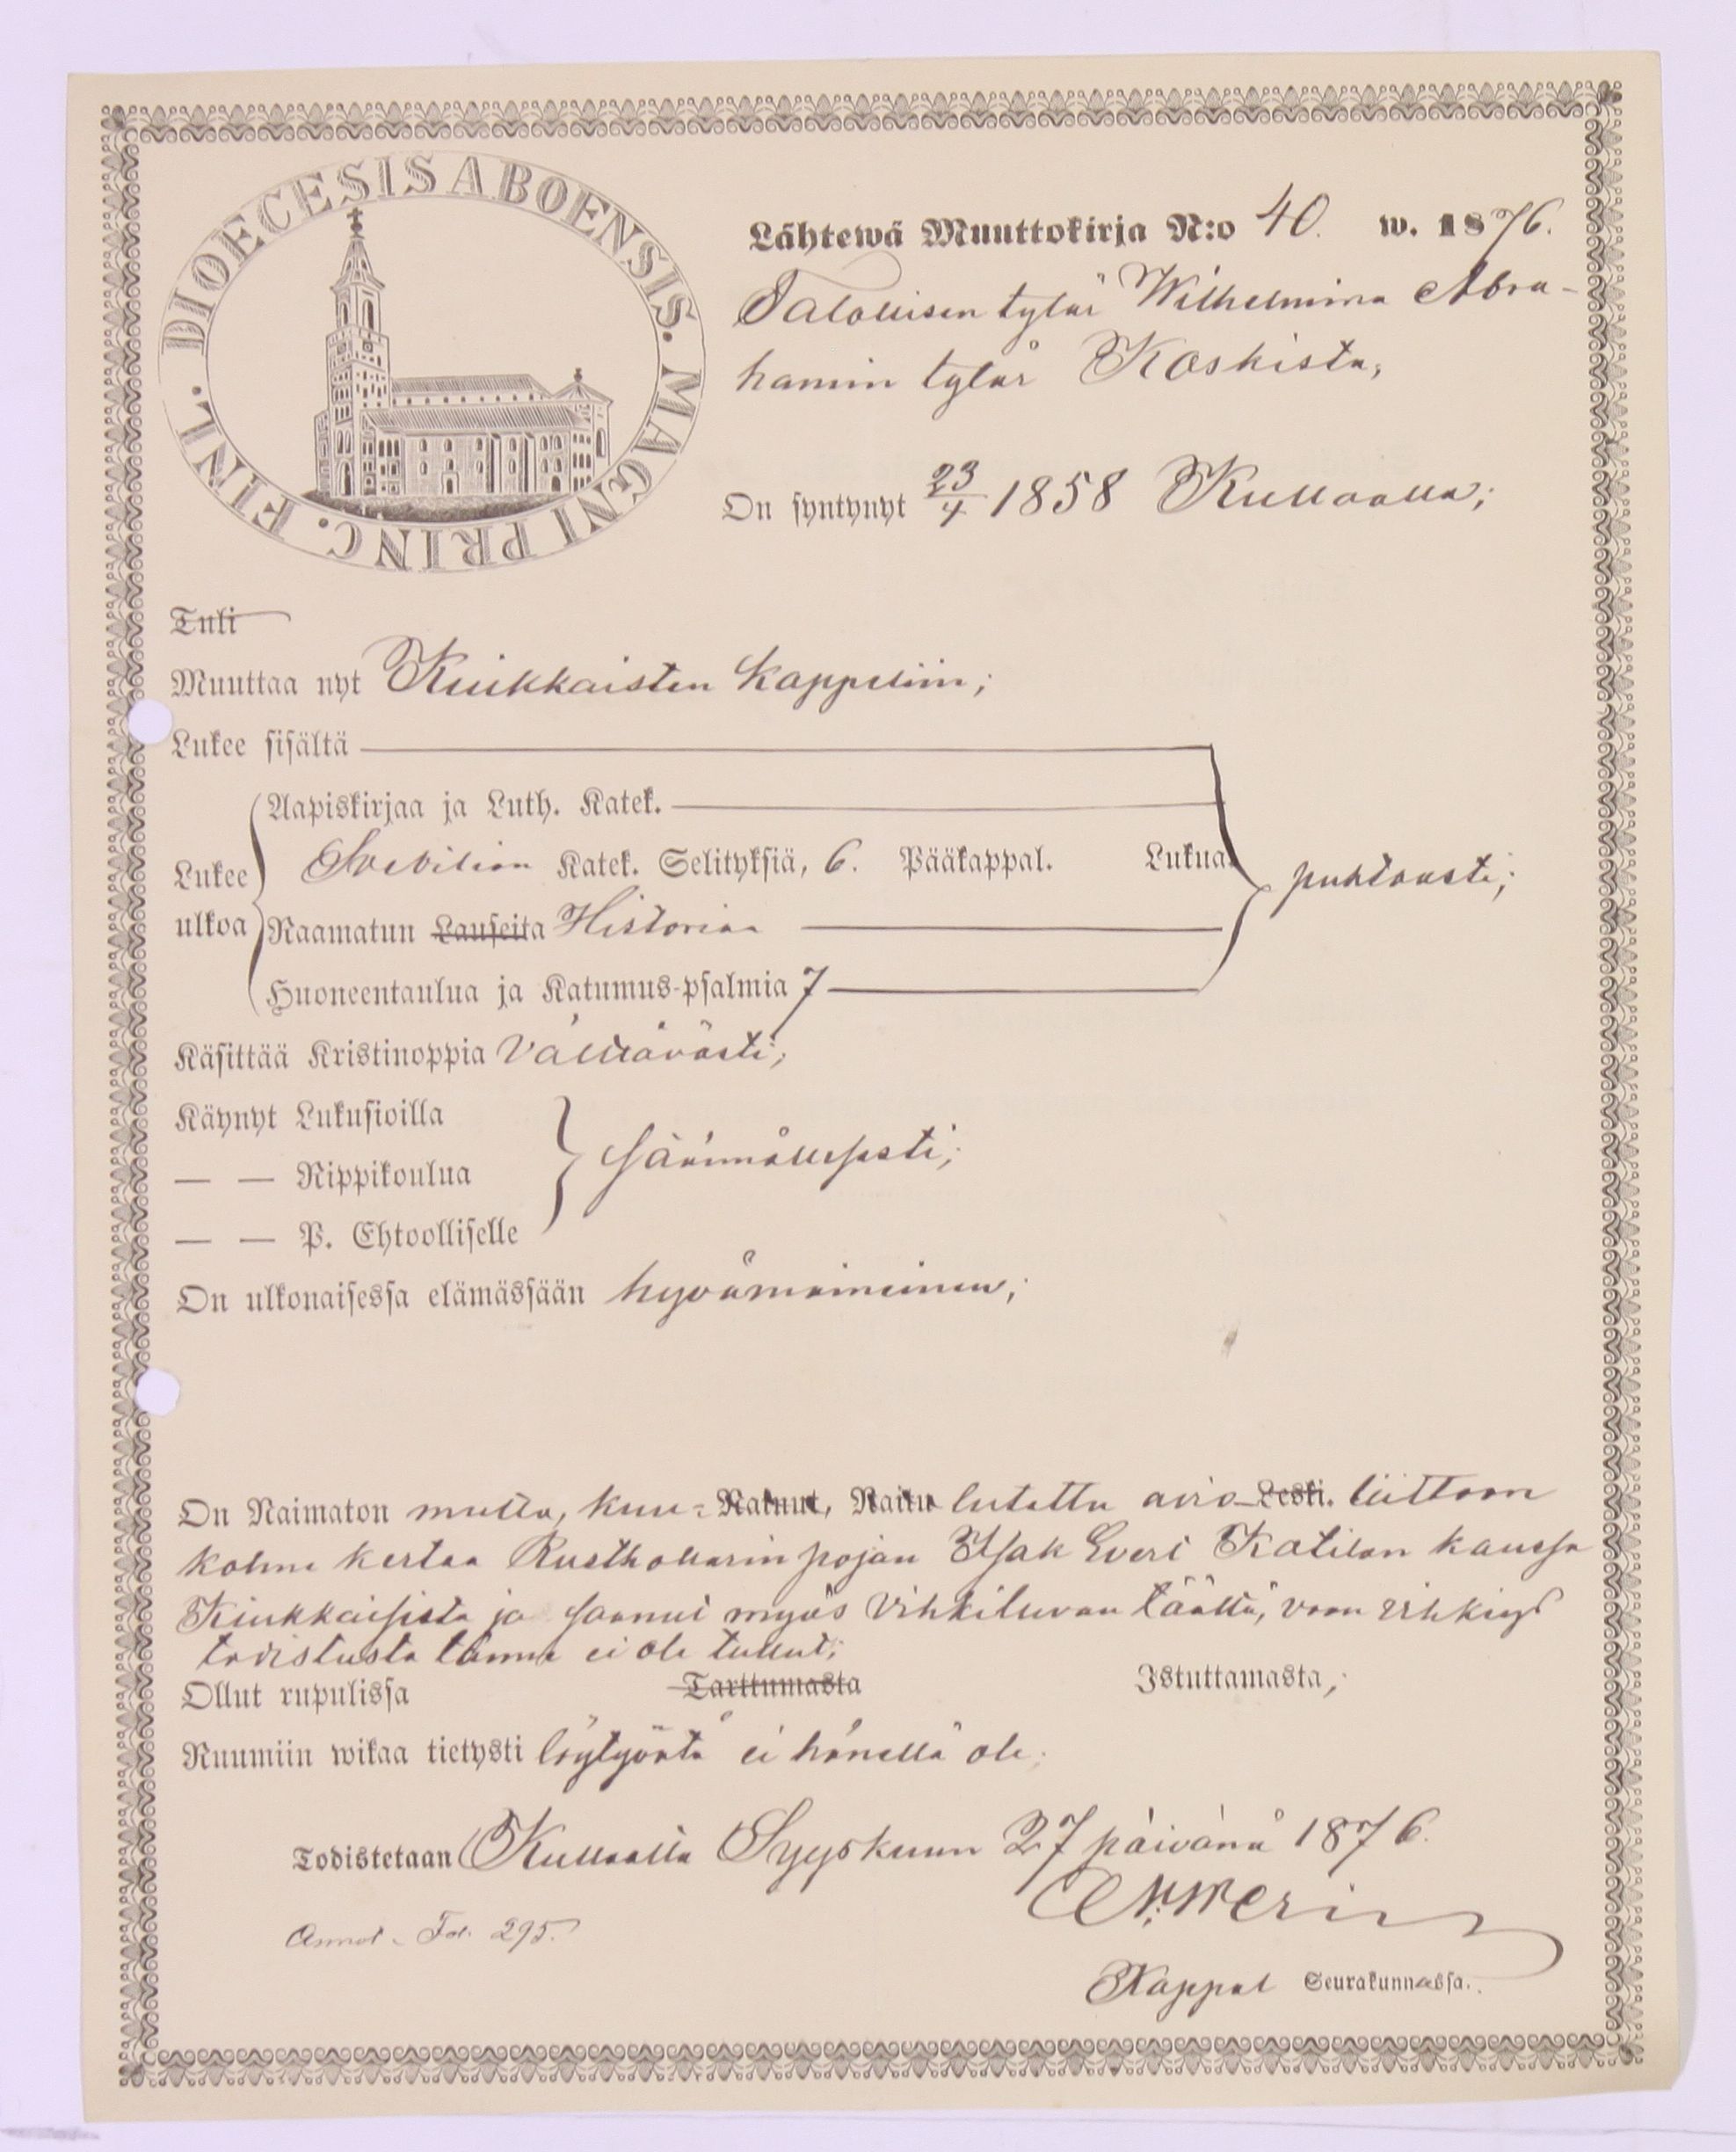 DIOECESIS ABOENSIS. MAGNI PRINC. FINL.
Lähtewä Muuttokirja N:o 40. w. 1876.
Talollisen tytär Wilhelmina Abra-
hamin tytär Koskista,
On syntynyt 23/4 1858 Kullaalla;
Tuli
Muuttaa nyt Kiukkaisten Kappeliin;
Lukee sisältä
Aapiskirjaa ja Luth. Katek.
Lukee Svebilion Katek. Selityksiä, 6. Pääkappal. Lukua puhtaasti;
ulkoa Raamatun Lauseita Historiaa
Huoneentaulua ja Katumus-psalmia 7
Käsittää Kristinoppia Välttävästi;
Käynyt Lukusioilla
— — Rippikoulua säännöllisesti;
— — P. Ehtoolliselle
On ulkonaisessa elämässään hyvämaineinen;
On Naimaton mutta, kuu- Nainut, Naitu lutettu avio- Leski. liittoon
kolme kertaa Rusthollarin pojan Isak Evert Katilan kanssa
Kiukkaisista ja saanut myös Vihkiluvan täältä, vaan vihkiys
todistusta tänne ei ole tullut;
Ollut rupulissa Tarttumasta Istuttamasta;
Ruumiin wikaa tietysti löytyvätä ei hänellä ole;
Todistetaan Kullaalla Syyskuun 27 päivänä 1876.
Annot. Fol. 295.
Kappal Seurakunnassa.